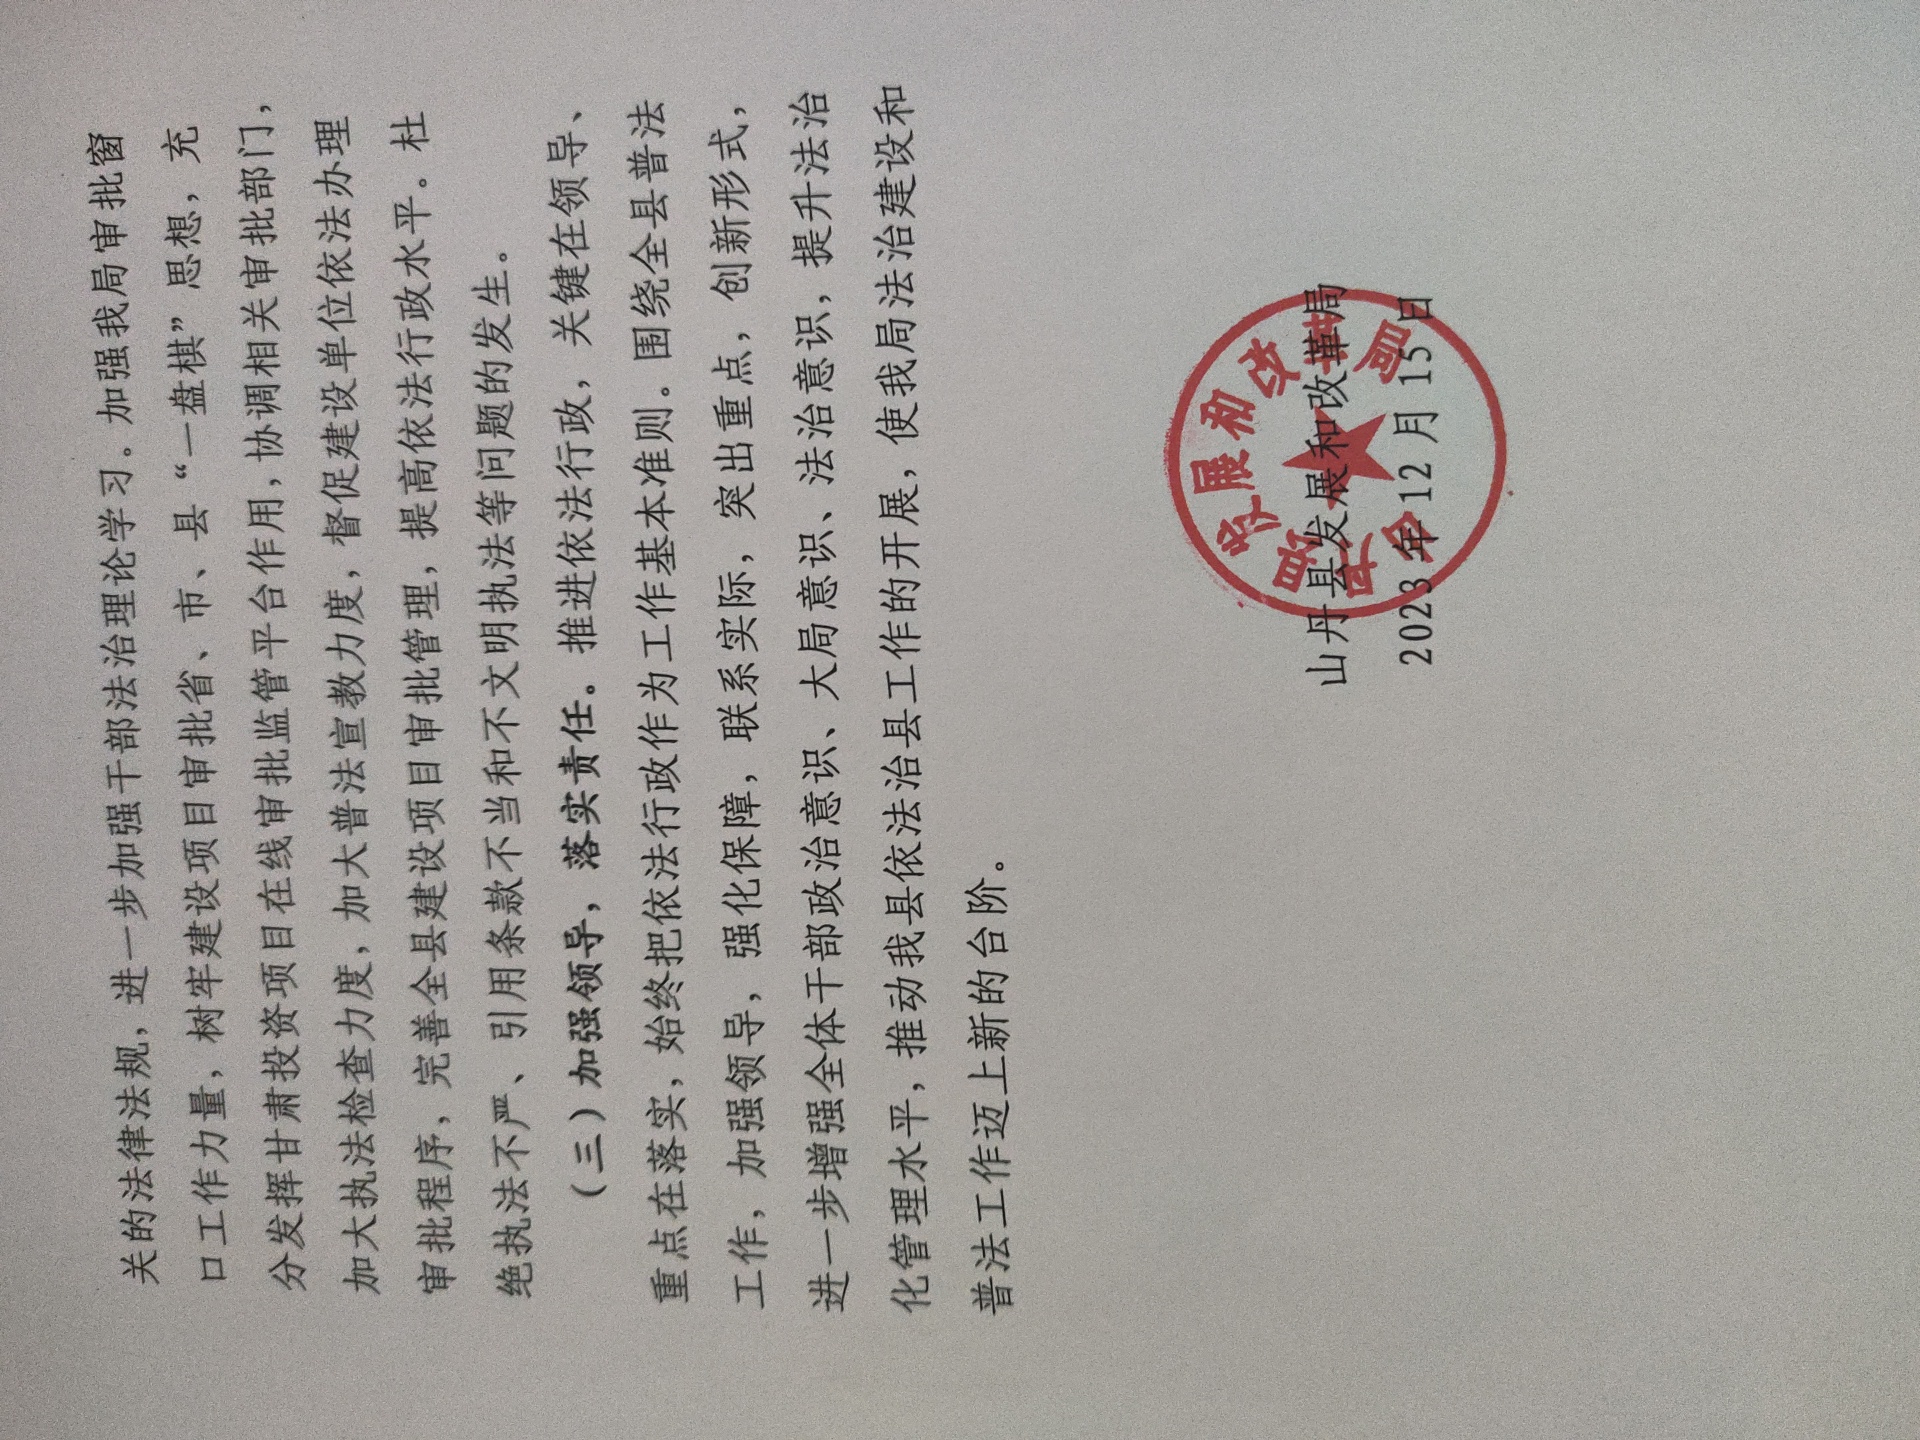 关的法律法规，进一步加强干部法治理论学习。加强我局审批窗
口工作力量，树牢建设项目审批省、市、县“一盘棋”思想，充
分发挥甘肃投资项目在线审批监管平台作用，协调相关审批部门，
加大执法检查力度，加大普法宣教力度，督促建设单位依法办理
审批程序，完善全县建设项目审批管理，提高依法行政水平。杜
绝执法不严、引用条款不当和不文明执法等问题的发生。
（三）加强领导，落实责任。推进依法行政，关键在领导、
重点在落实，始终把依法行政作为工作基本准则。围绕全县普法
工作，加强领导，强化保障，联系实际，突出重点，创新形式，
进一步增强全体干部政治意识、大局意识、法治意识，提升法治
化管理水平，推动我县依法治县工作的开展，使我局法治建设和
普法工作迈上新的台阶。
山丹县发展和改革局
2023年12月15日
山丹县发展和改革局